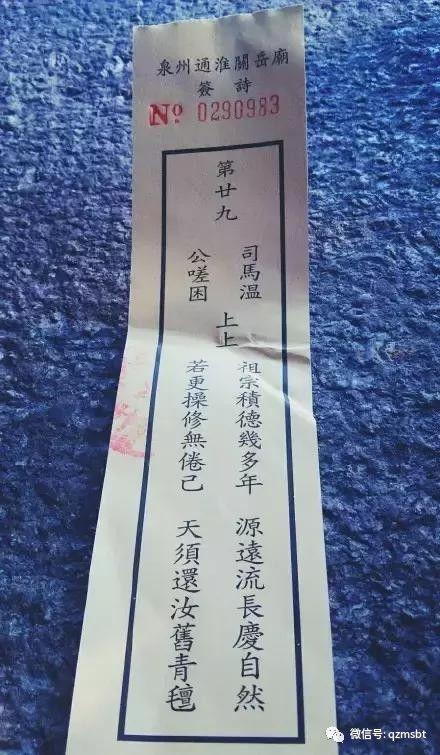 泉州通淮關岳廟
簽詩
Nº 0290983
第廿九
司馬溫
公嗟困
上上
祖宗積德幾多年 源遠流長慶自然
若更操修無倦己 天須還汝舊青氈
微信号: qzmsbt